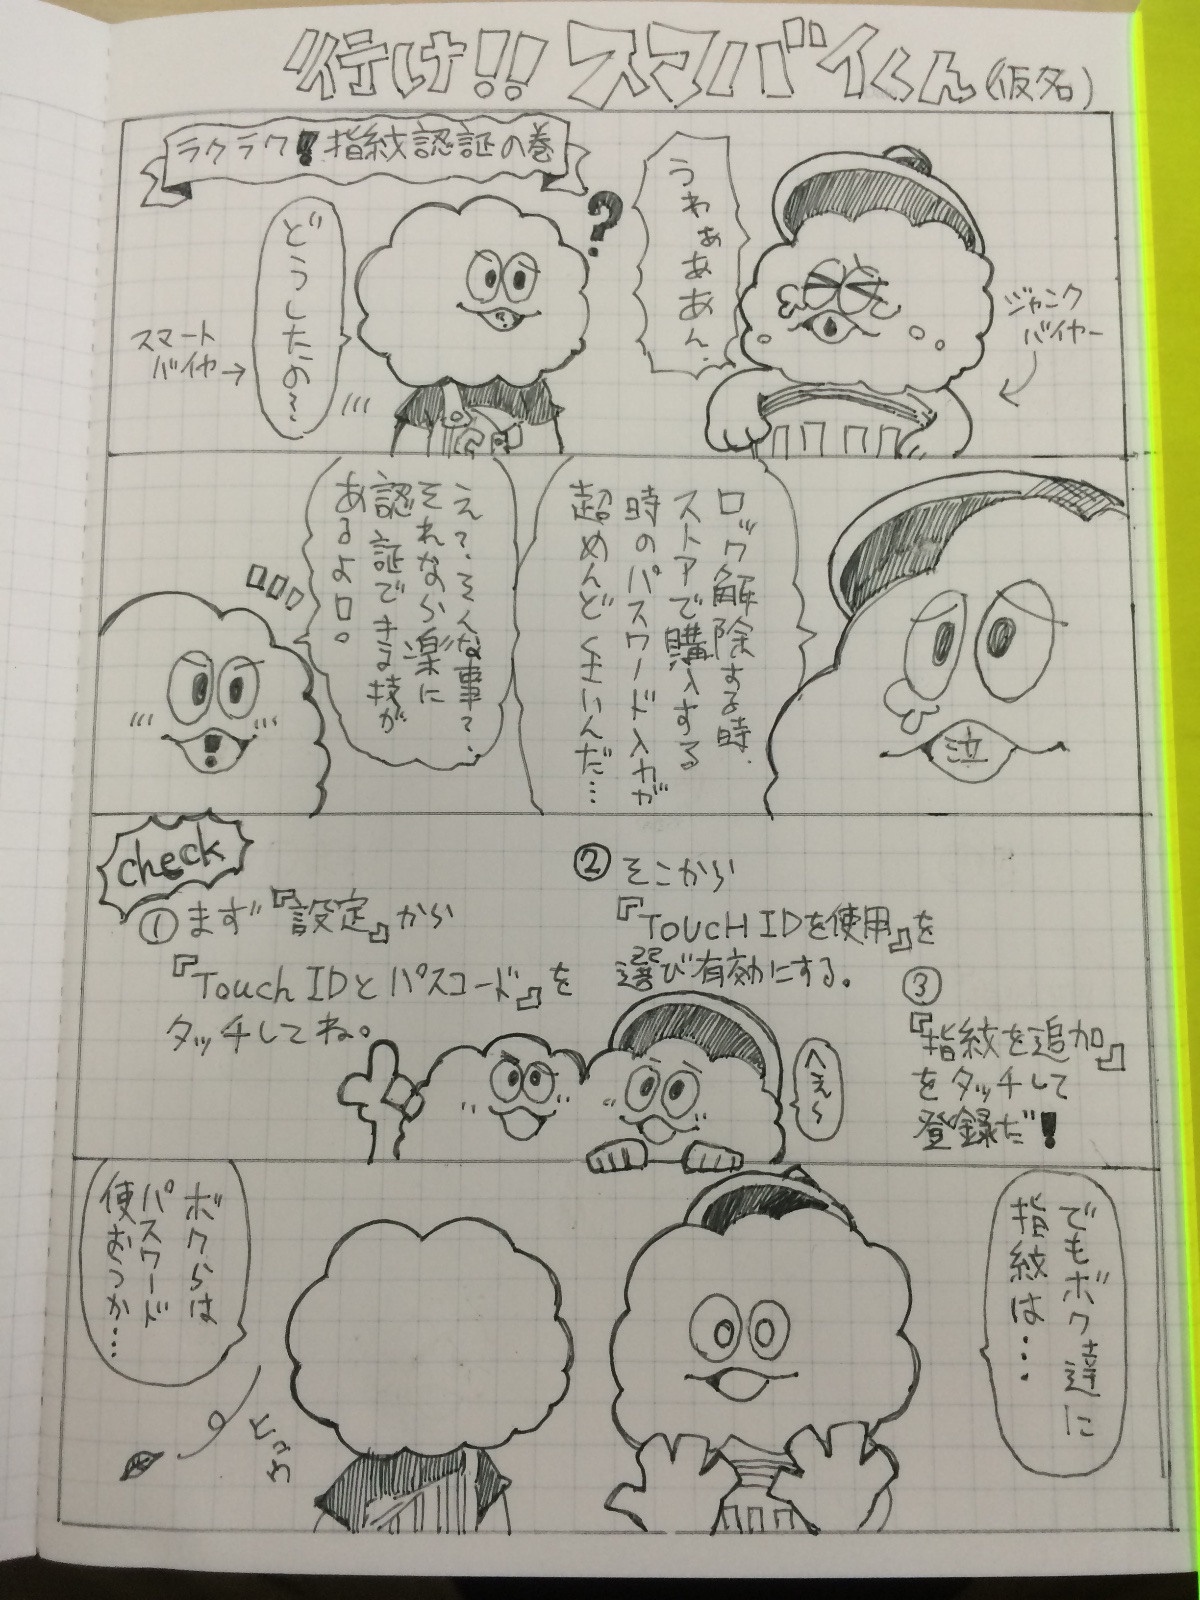 行け!! スマバイくん(仮名)
ラクラク!指紋認証の巻
うわぁああん.
ジャンク
バイヤー
?
どうしたの〜
スマート
バイヤー
ロック解除する時、
ストアで購入する
時のパスワード入力が
超めんどくさいんだ…
泣
え?、そんな事?、
それなら楽に
認証できる技が
あるよ。
!
check
①まず『設定』から
『Touch IDとパスコード』を
タッチしてね。
②そこから
『TOUCH IDを使用』を
選び有効にする。
③
『指紋を追加』
をタッチして
登録だ!
へぇ〜
でもボク達に
指紋は・・・
ボクらは
パスワード
使おうか…